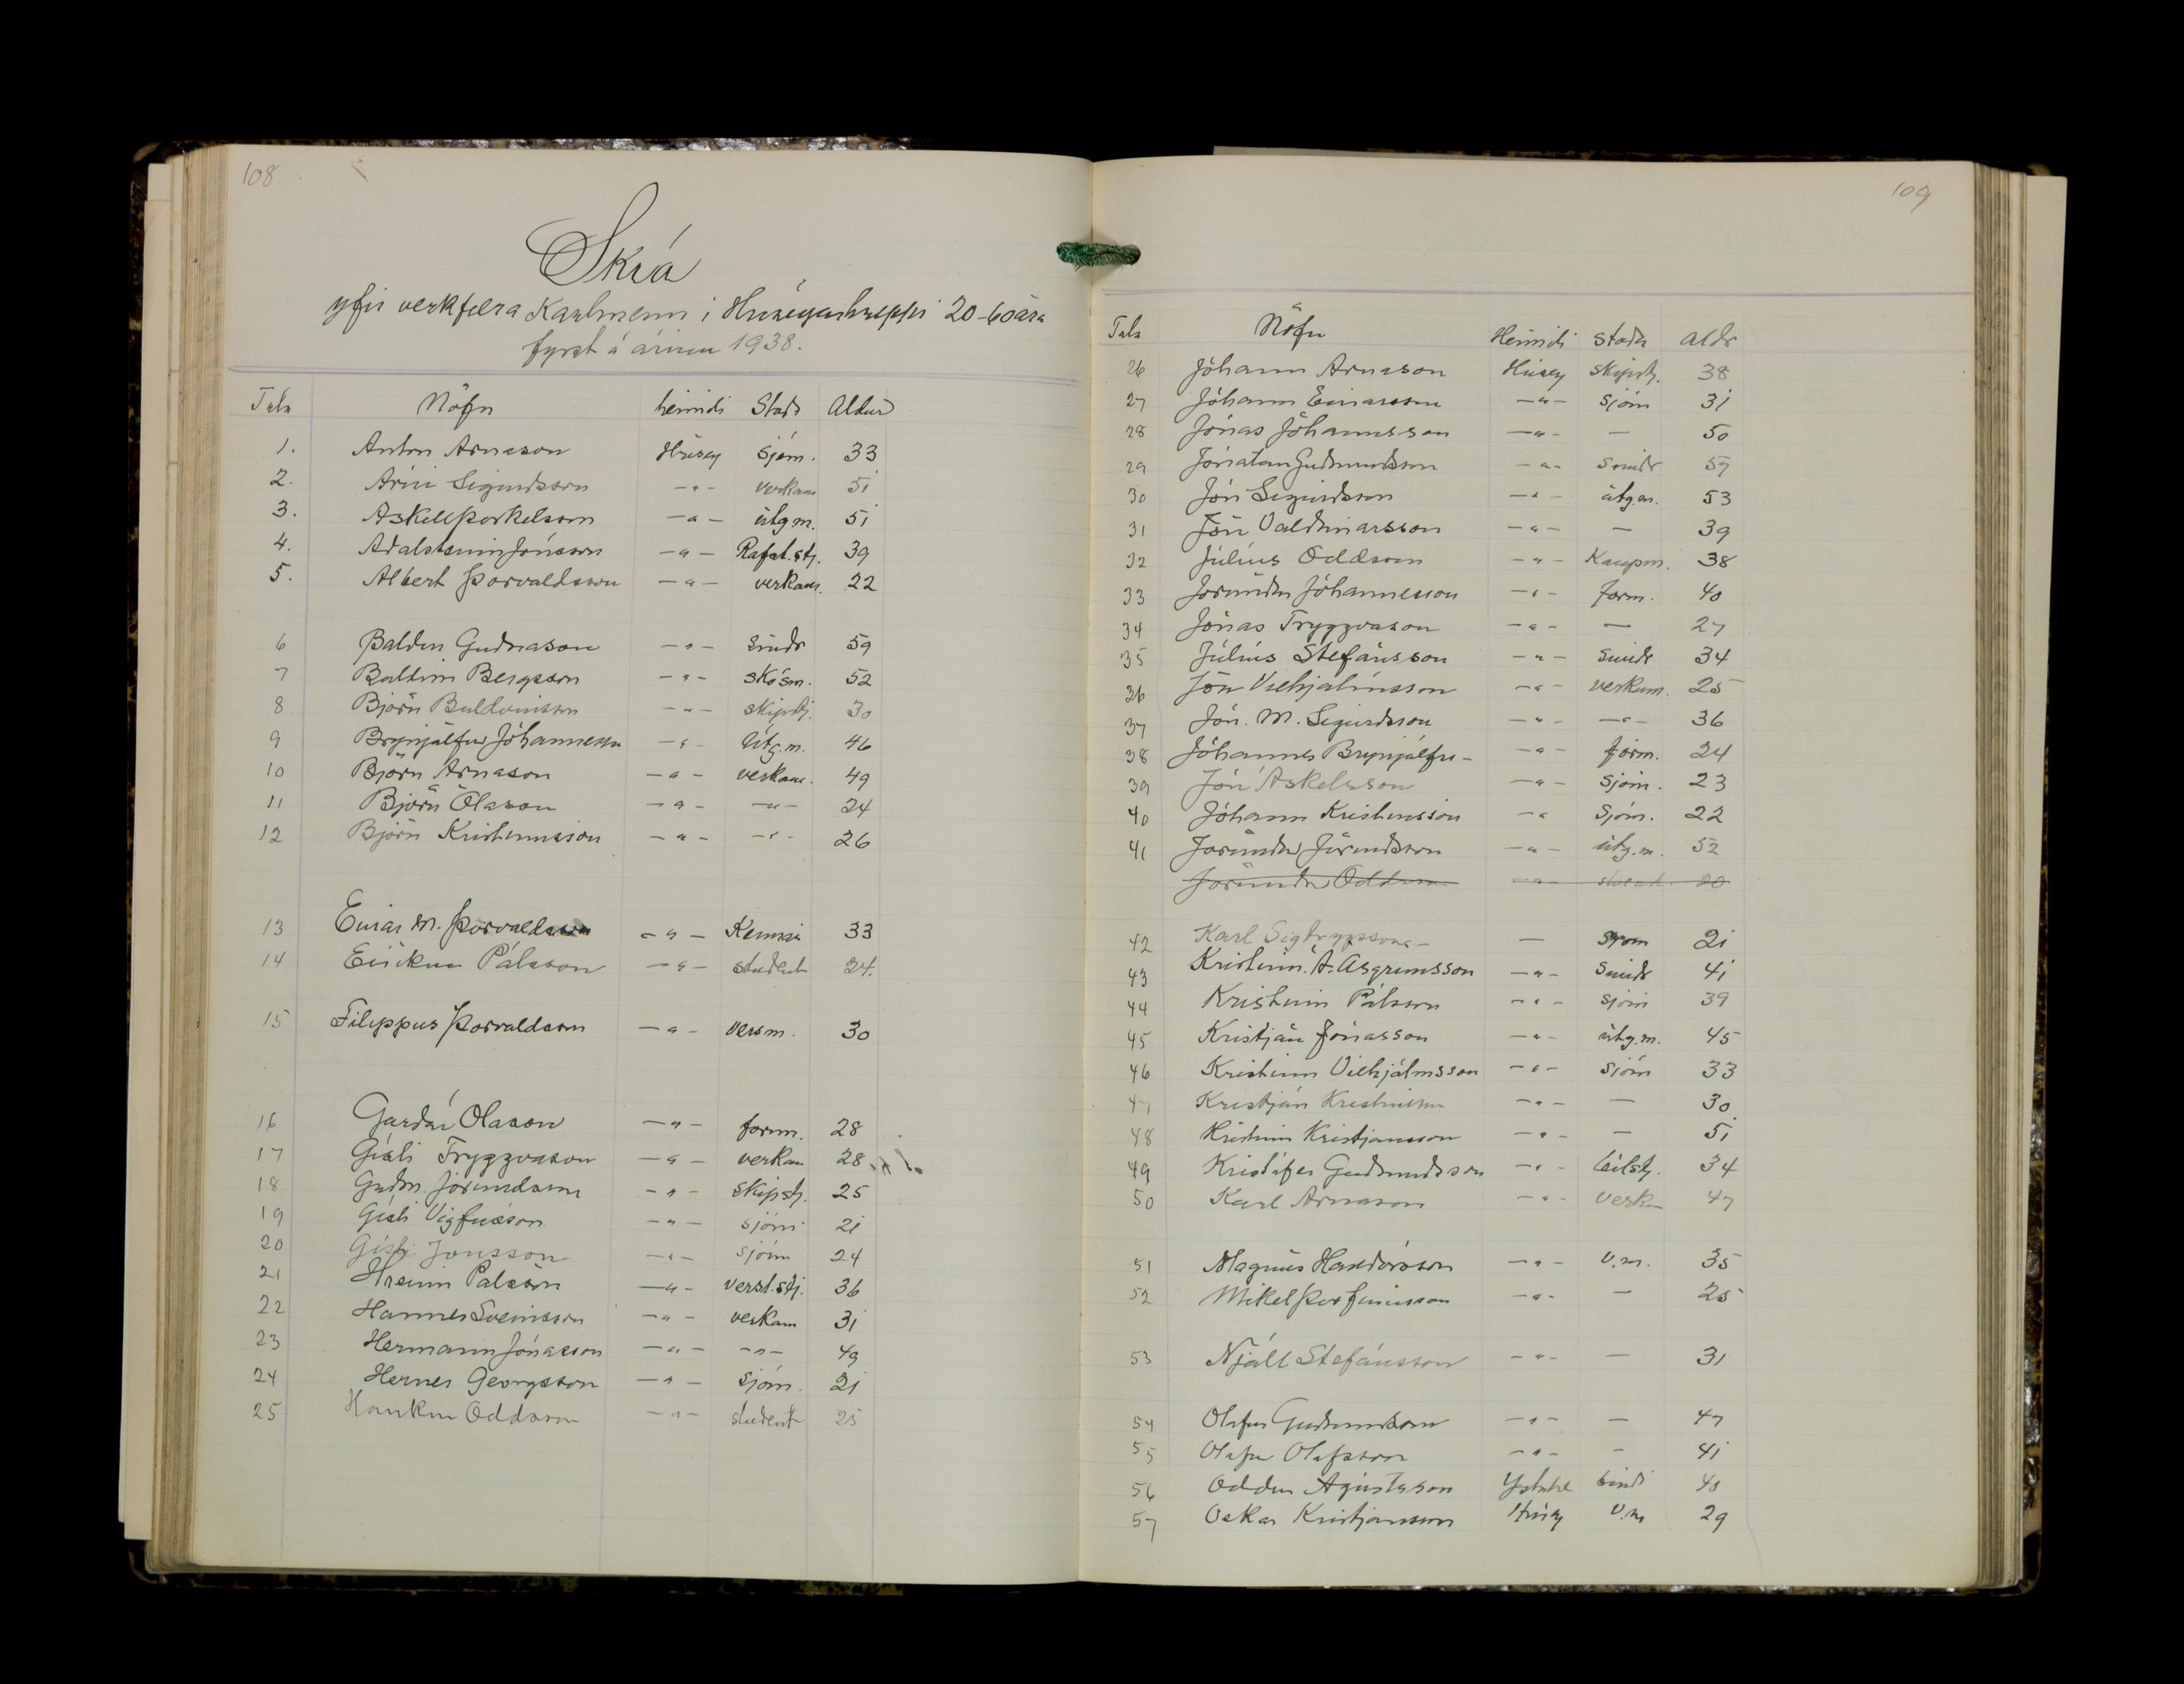 108
Skrá
yfir verkfæra Karlmenn í Hríseyarhreppi 20-60 ára
fyrst á árinu 1938.
Tala Nöfn heimili Stada Aldur
1. Anton Arnason Hrisey Sjóm. 33
2. Árni Sigurdsson -"- verkam 51
3. Askell Þorkelsson -"- útgm. 51
4. Adalsteinn Jónsson -"- Rafst.stj. 39
5. Albert Þorvaldsson -"- verkam. 22
6 Baldur Gudnason -"- smidr 59
7 Baltin Bergsson -"- skósm. 52
8 Björn Baldvinsson -"- skipstj. 30
9 Brynjálfur Jóhannesson -"- Útg.m. 46
10 Björn Arnason -"- verkam. 49
11 Björn Ólason -"- -"- 24
12 Björn Kristinnsson -"- -"- 26
13 Einar M. Þorvaldsson -"- Kennari 33
14 Eirikur Pálsson -"- student 24.
15 Filippus Þorvaldsson -"- versm. 30
16 Gardar Olason -"- form. 28
17 Gisli Tryggvason -"- verkam 28
18 Gudm. Jörundsson -"- Skipstj. 25
19 Gisli Vigfusson -"- sjóm 21
20 Gisli Jonsson -"- sjóm 24
21 Hreinn Palsson -"- verst.stj. 36
22 Hannes Sveinsson -"- verkam 31
23 Hermann Jónasson -"- -"- 49
24 Hernes Georgsson -"- Sjóm. 21
25 Haukur Oddsson -"- student 25
109
Tala Nöfn Heimili stada aldr
26 Jóhann Arnason Hrisey skipstj. 38
27 Jóhann Einarsson -"- sjóm 31
28 Jónas Jóhannsson -"- - 50
29 Jónatan Gudmundsson -"- smidr 57
30 Jón Sigurdsson -"- útg.m. 53
31 Jón Valdimarsson -"- - 39
32 Júlíus Oddsson -"- Kaupm. 38
33 Jörundur Jóhannesson -"- form. 40
34 Jónas Tryggvason -"- - 27
35 Júlíus Stefánsson -"- Smidr 34
36 Jón Vilhjálmsson -"- verkam. 25
37 Jón. M. Sigurdsson -"- -"- 36
38 Jóhannes Brynjálfu- -"- form. 24
39 Jón Askelsson -"- sjóm. 23
40 Jóhann Kristinsson -" Sjóm. 22
41 Jörundur Jörundsson -"- útg.m. 52
Jörundur Oddsson -"- student. 20
42 Karl Sigtryggsson - - sjom 21
43 Kristinn. A. Asgrimsson -"- Smidr 41
44 Kristinn Pálsson -"- sjóm 39
45 Kristján Jónasson -"- útg.m. 45
46 Kristinn Vilhjálmsson -"- sjóm 33
47 Kristján Kristinsson -"- - 30
48 Kristinn Kristjansson -"- - 51
49 Kristófer Gudmundsson -"- bilstj. 34
50 Karl Arnason -"- verk 47
51 Magnús Haldórsson -"- v.m. 35
52 Mikel Þorfinnsson -"- - 25
53 Njáll Stefánsson -"- - 31
54 Olafur Gudmundsson -"- - 47
55 Olafur Olafsson -"- - 41
56 Oddur Agústsson Ystabæ bondi 40
57 Oskar Kristjansson Hrisey v.m 29